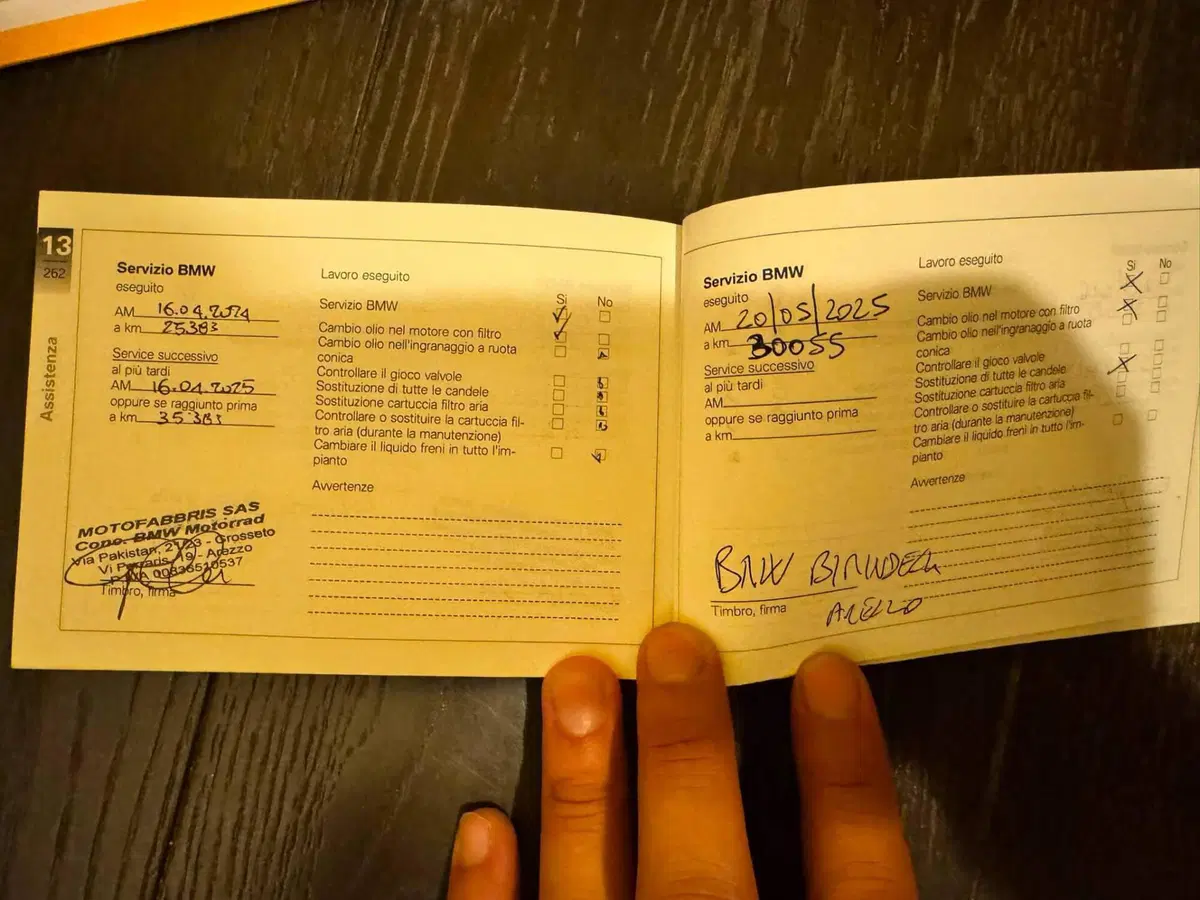 13
262
Assistenza
Servizio BMW
eseguito
AM 16.04.2024
a km 25383
Service successivo
al più tardi
AM 16.04.2025
oppure se raggiunto prima
a km 35383
MOTOFABBRIS SAS
Conc. BMW Motorrad
Via Pakistan, - Grosseto
19 - Arezzo
Timbro, firma
Lavoro eseguito
Si No
Servizio BMW
Cambio olio nel motore con filtro
Cambio olio nell'ingranaggio a ruota
conica
Controllare il gioco valvole
Sostituzione di tutte le candele
Sostituzione cartuccia filtro aria
Controllare o sostituire la cartuccia fil-
tro aria (durante la manutenzione)
Cambiare il liquido freni in tutto l'im-
pianto
Avvertenze
Servizio BMW
eseguito
AM 20/05/2025
a km 30055
Service successivo
al più tardi
AM
oppure se raggiunto prima
a km
BMW
Timbro, firma
Lavoro eseguito
Si No
Servizio BMW
Cambio olio nel motore con filtro
Cambio olio nell'ingranaggio a ruota
conica
Controllare il gioco valvole
Sostituzione di tutte le candele
Sostituzione cartuccia filtro aria
Controllare o sostituire la cartuccia fil-
tro aria (durante la manutenzione)
Cambiare il liquido freni in tutto l'im-
pianto
Avvertenze